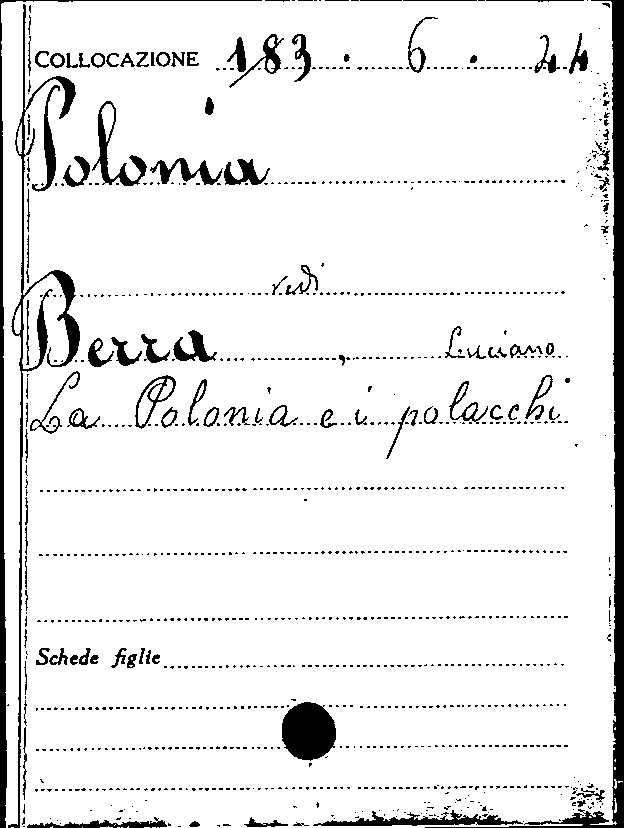 COLLOCAZIONE 183 . 6 . 24
Polonia
vedi
Berra, Luciano
La Polonia e i polacchi
Schede figlie